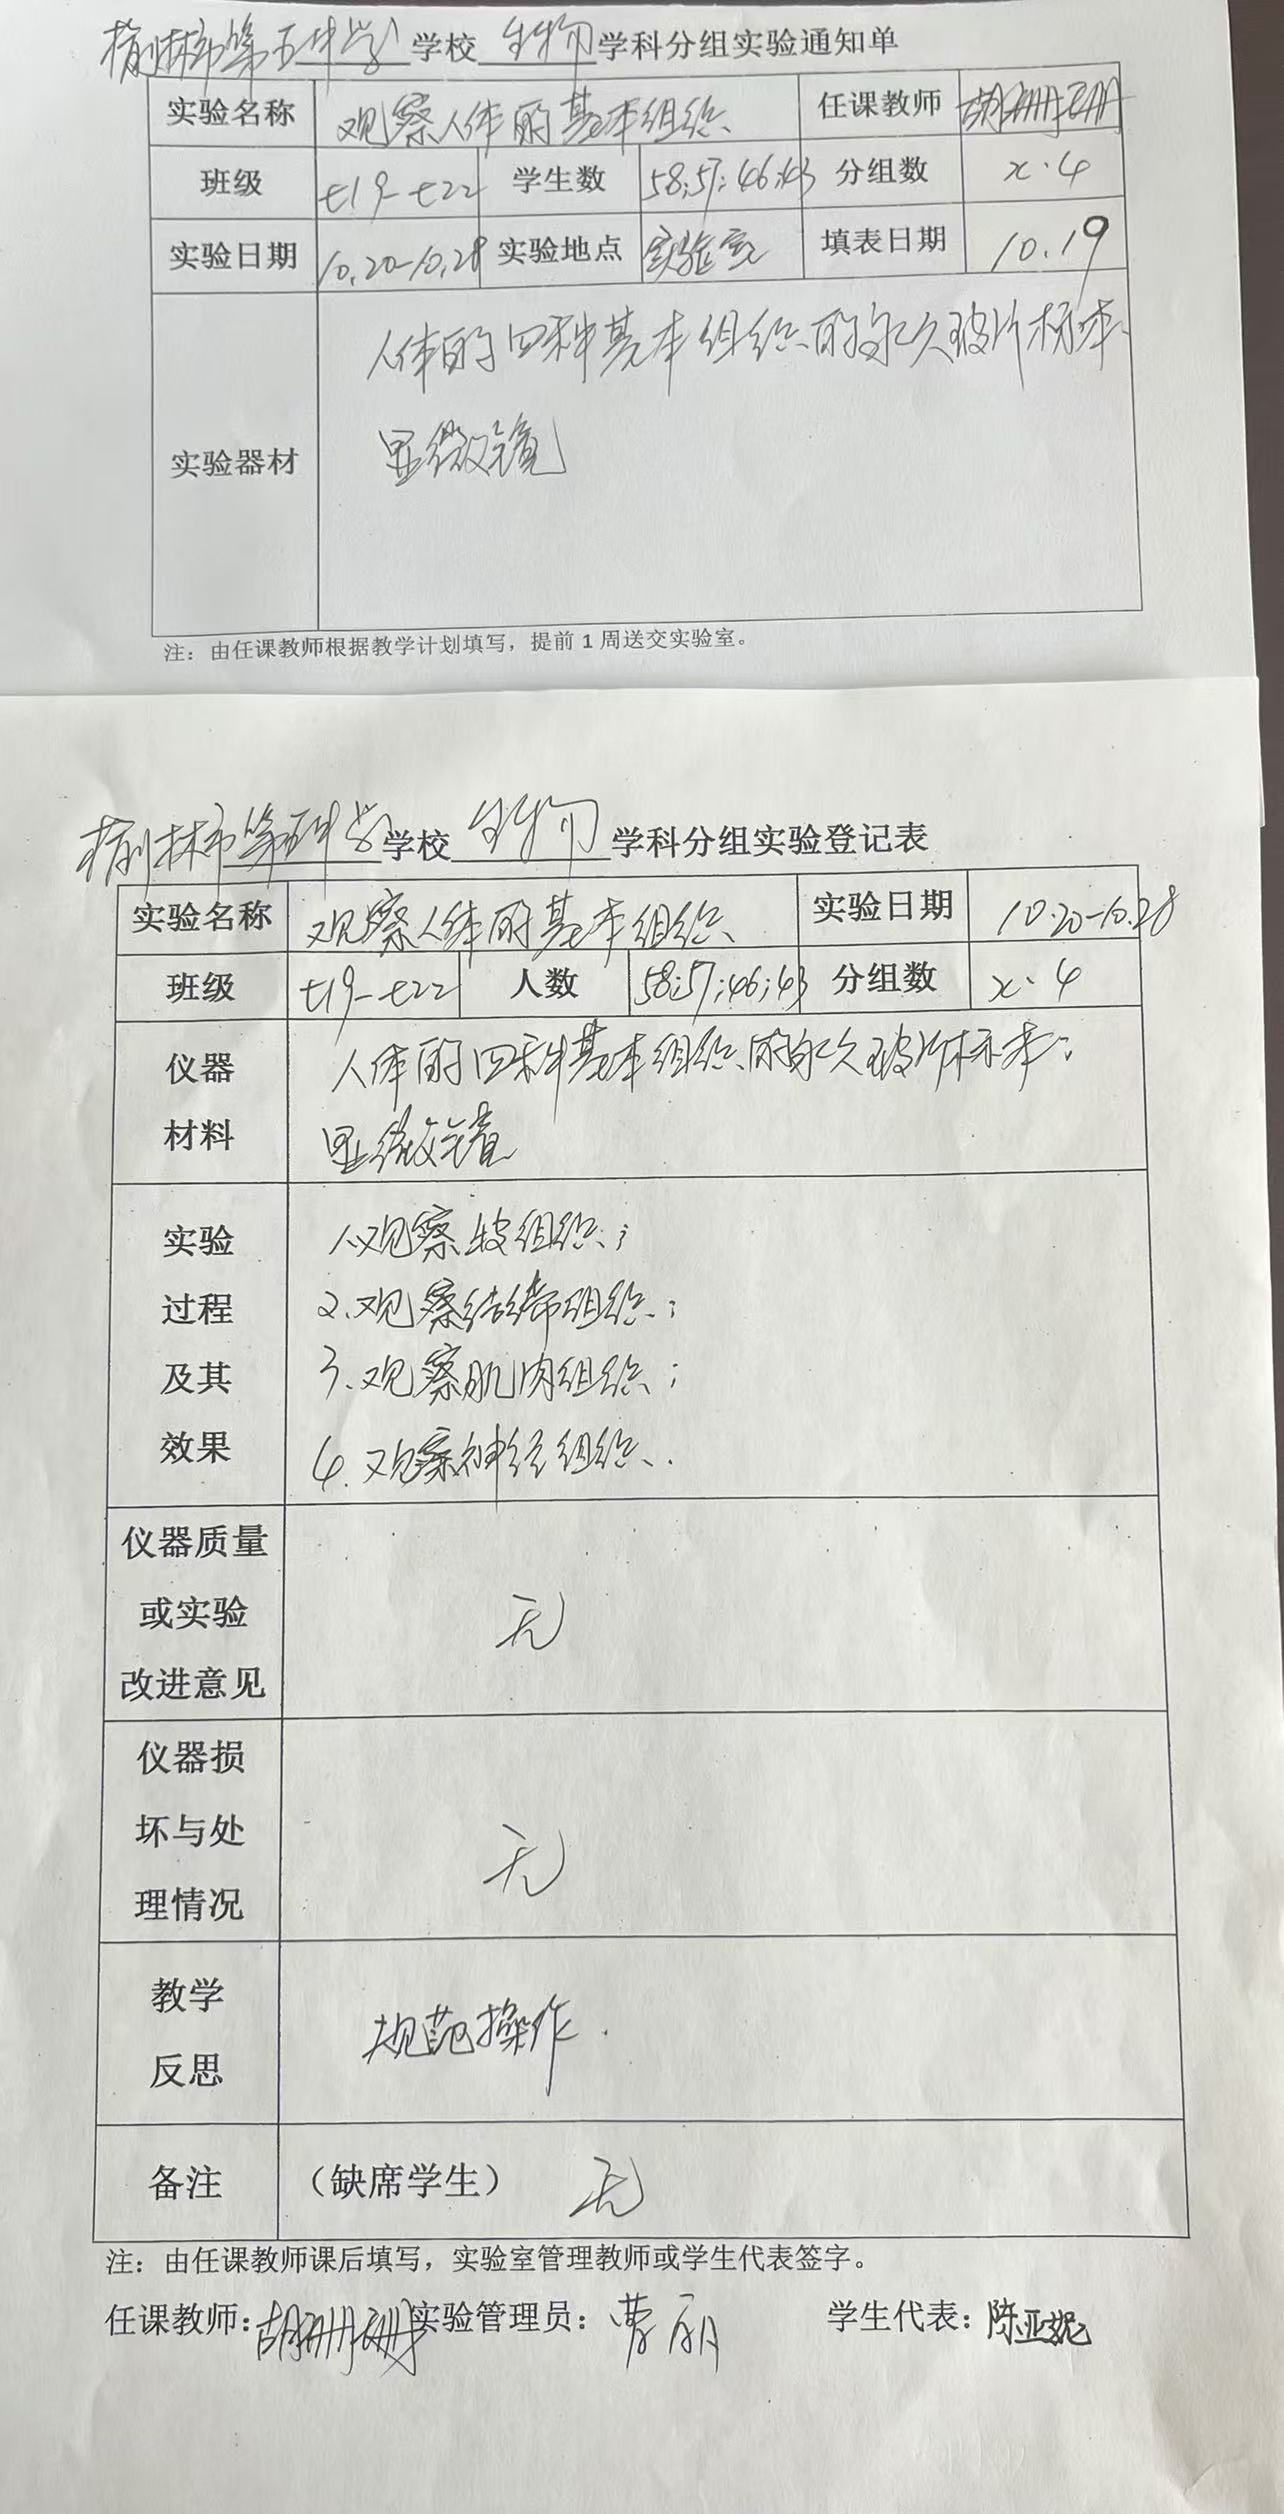 榆林市第五中学学校 生物学科分组实验通知单
实验名称 观察人体的基本组织 任课教师 胡珊珊
班级 七19-七22 学生数 58;57;46;43 分组数 x·4
实验日期 10.20-10.28 实验地点 实验室 填表日期 10.19
实验器材 人体的四种基本组织的永久玻片标本、
显微镜
注：由任课教师根据教学计划填写，提前 1 周送交实验室。
榆林市第五中学学校 生物 学科分组实验登记表
实验名称 观察人体的基本组织 实验日期 10.20-10.28
班级 七19-七22 人数 58;57;46;43 分组数 x·4
仪器 人体的四种基本组织的永久玻片标本；
材料 显微镜
实验 1.观察皮组织；
过程 2.观察结缔组织；
及其 3.观察肌肉组织；
效果 4.观察神经组织.
仪器质量
或实验 无
改进意见
仪器损
坏与处 无
理情况
教学 规范操作.
反思
备注 （缺席学生） 无
注：由任课教师课后填写，实验室管理教师或学生代表签字。
任课教师：胡珊珊 实验管理员：曹丽 学生代表：陈亚妮